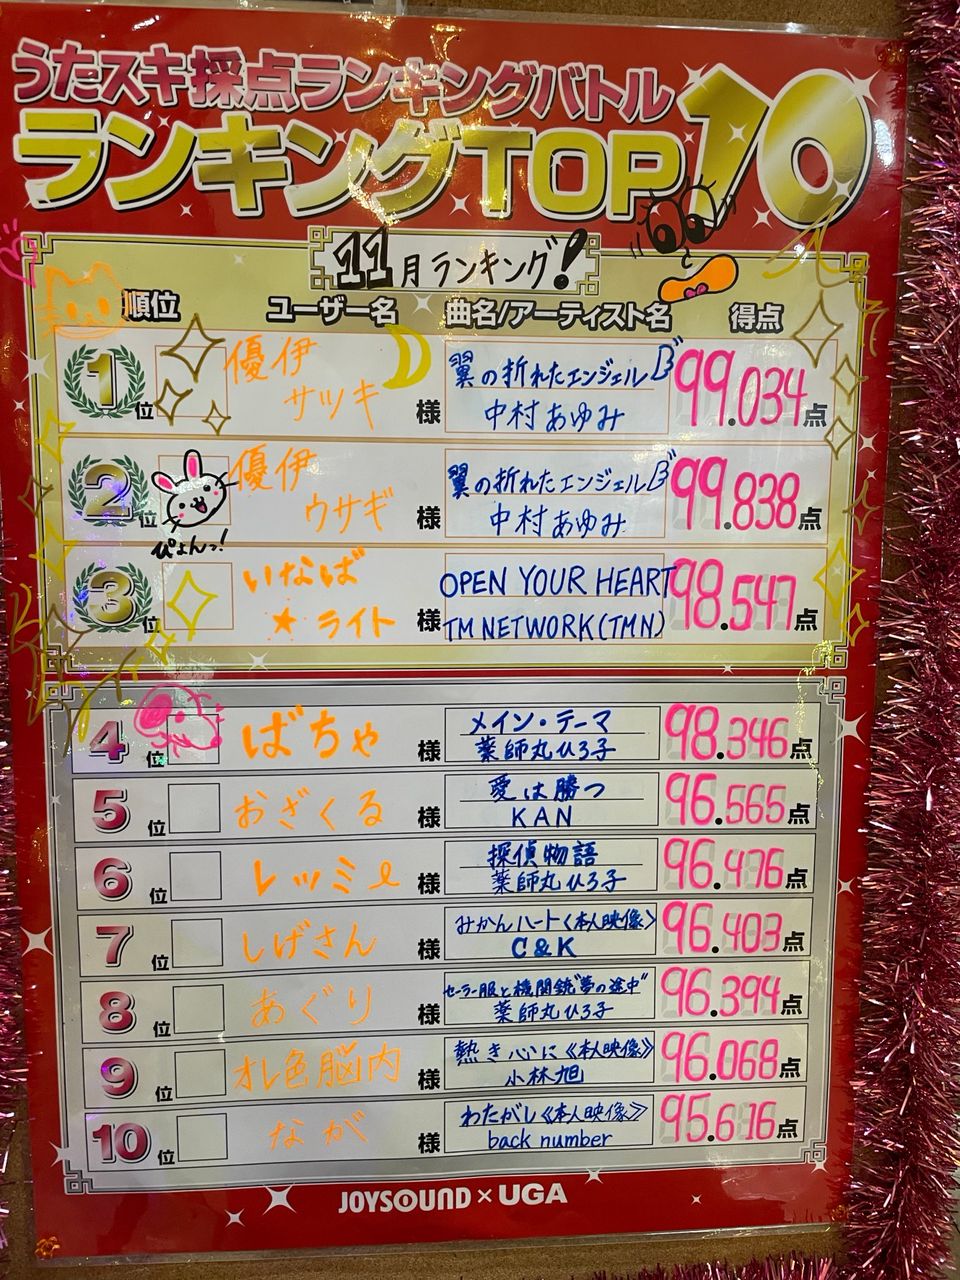 うたスキ採点ランキングバトル
ランキングTOP10
11月ランキング!
順位 ユーザー名 曲名/アーティスト名 得点
1位 優伊サツキ 様 翼の折れたエンジェルB 99.034点
中村あゆみ
2位 優伊ウサギ 様 翼の折れたエンジェルB 99.838点
中村あゆみ
ぴょんっ!
3位 いなば★ライト 様 OPEN YOUR HEART 98.547点
TM NETWORK(TMN)
4位 ばちゃ 様 メイン・テーマ 98.346点
薬師丸ひろ子
5位 おざくる 様 愛は勝つ 96.565点
KAN
6位 レッミe 様 探偵物語 96.476点
薬師丸ひろ子
7位 しげさん 様 みかんハート<本人映像> 96.403点
C&K
8位 あぐり 様 セーラー服と機関銃"夢の途中" 96.394点
薬師丸ひろ子
9位 オレ色脳内 様 熱き心に《本人映像》 96.068点
小林旭
10位 なが 様 わたがし《本人映像》 95.616点
back number
JOYSOUND×UGA